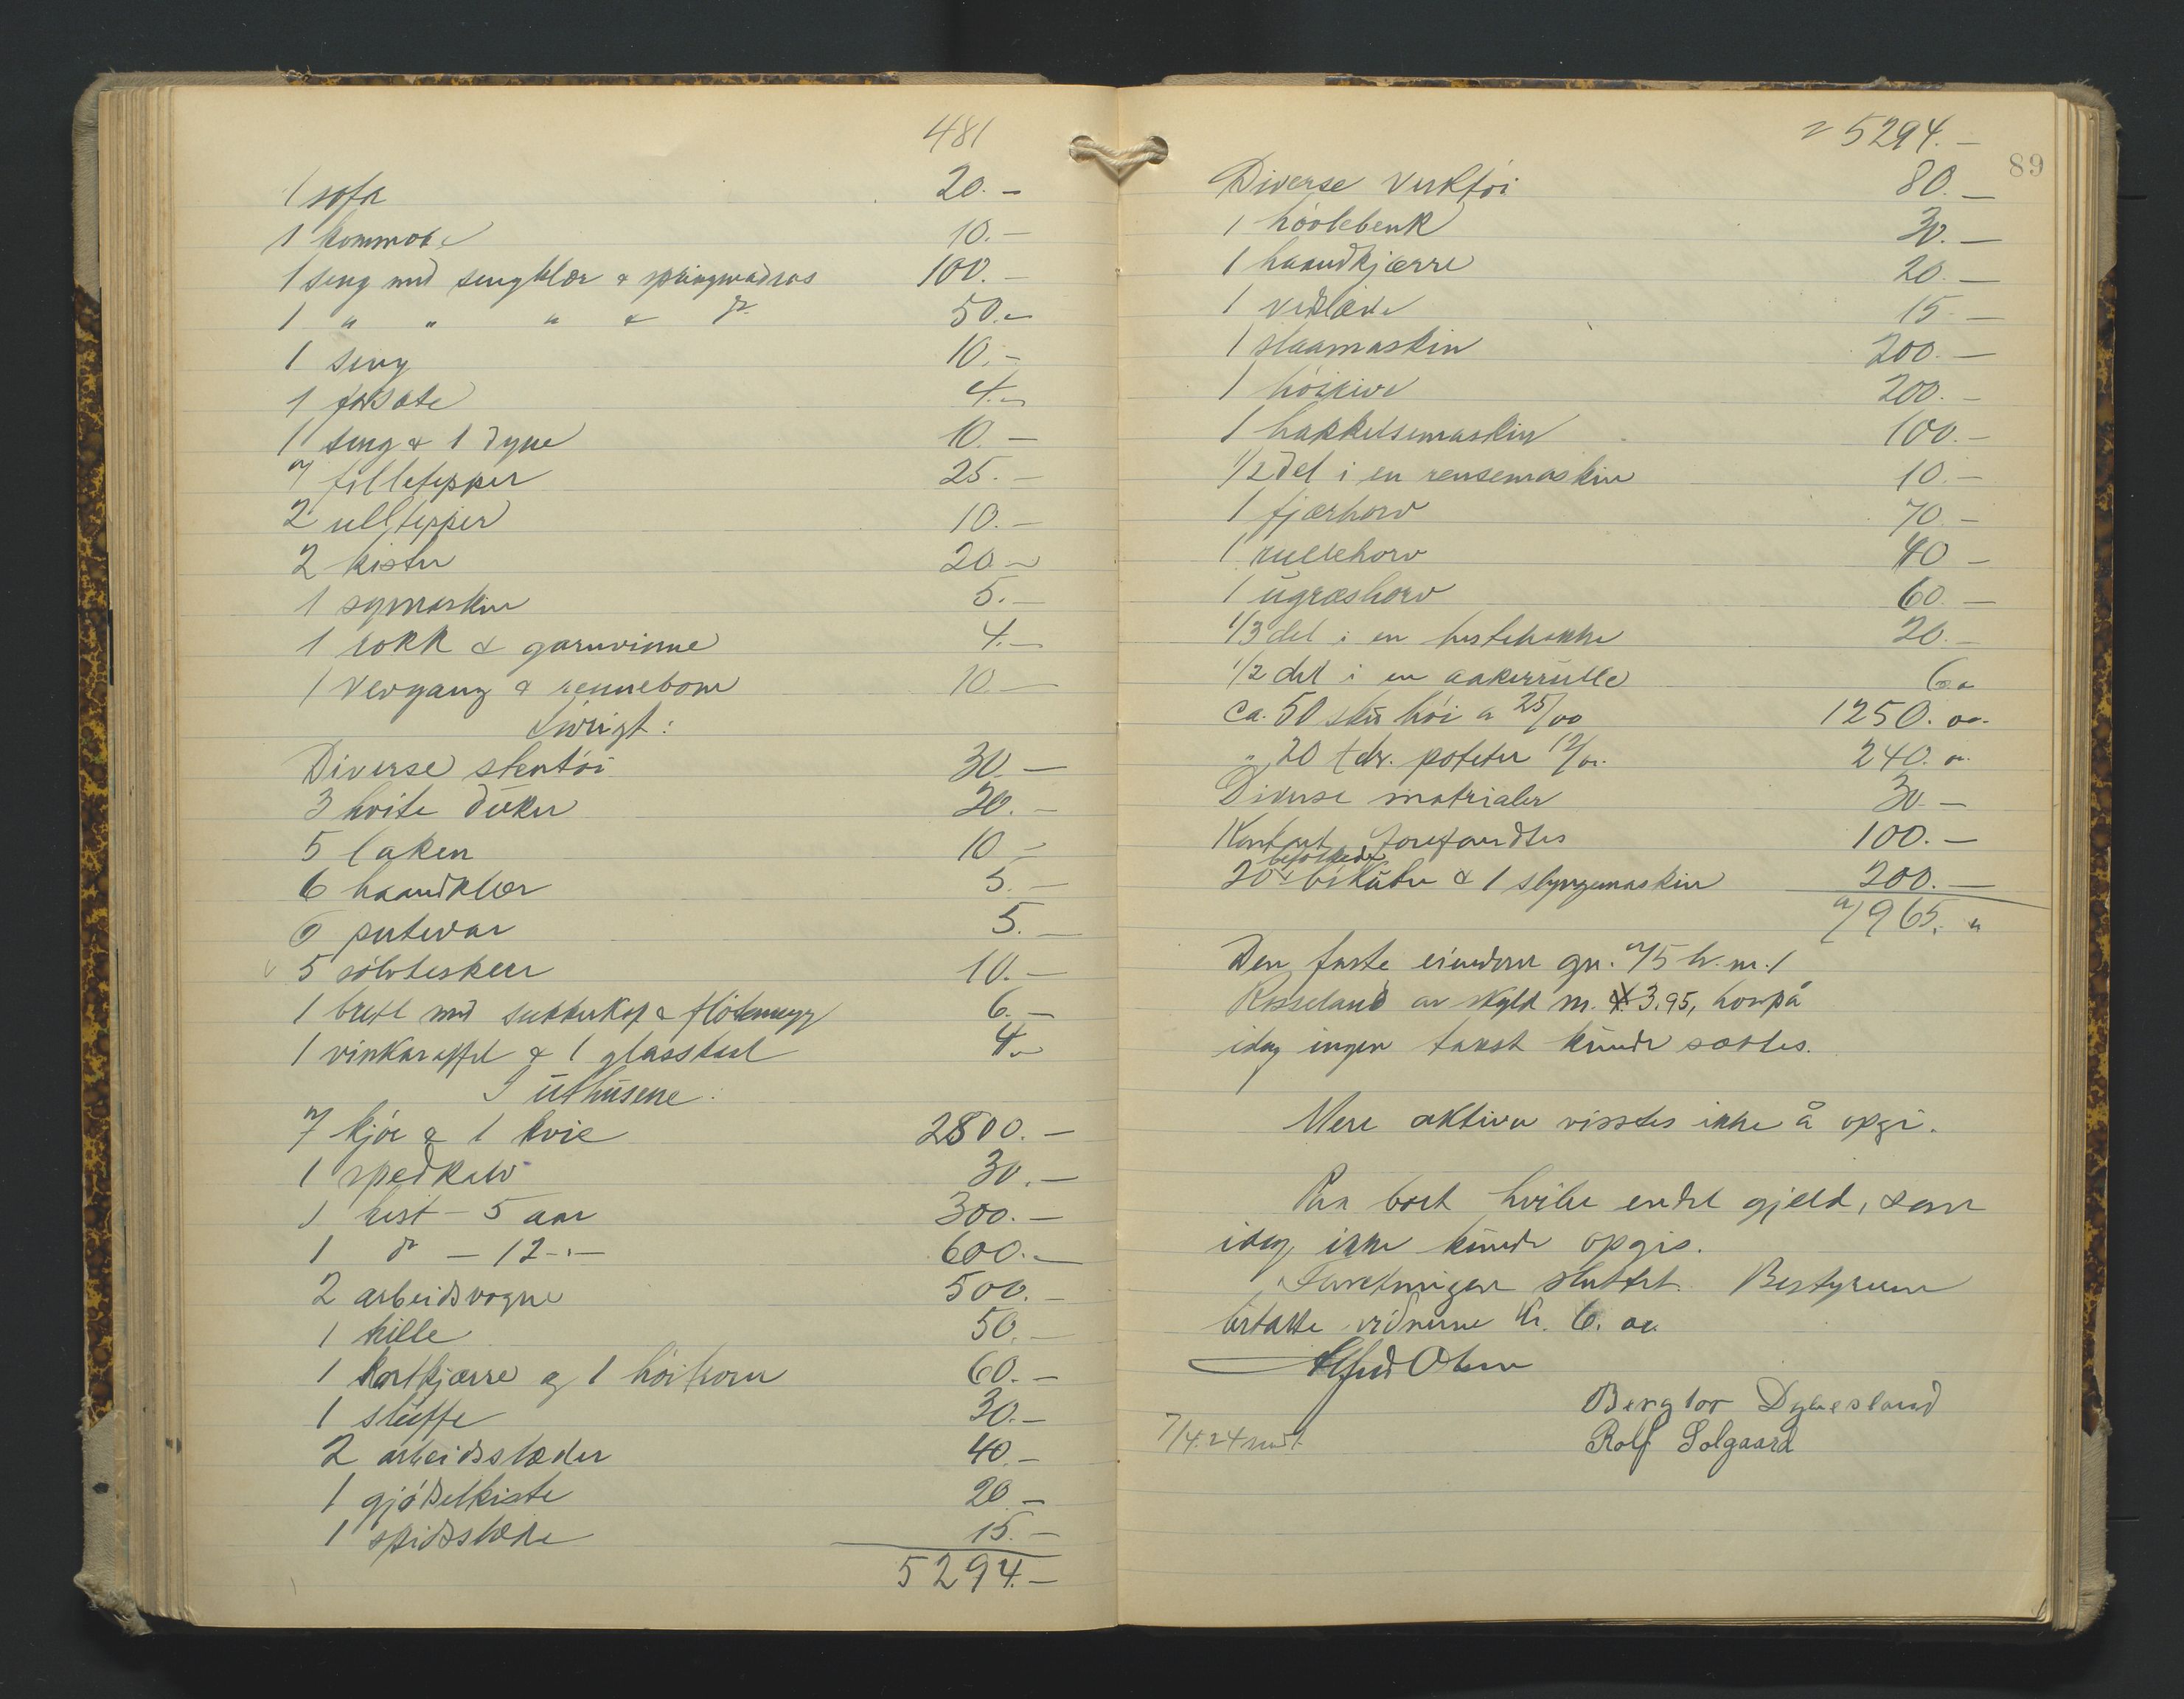 481
1 sofa 20.-
1 kommode 10.-
1 seng med sengklær & springmadras 100.-
1 " " " & do 50.-
1 seng 10.-
1 4.-
1 seng & 1 dyne 10.-
7 filletepper 25.-
2 ulltepper 10.-
2 kister 20.-
1 symaskin 5.-
1 rokk & garnvinne 4.-
1 vevgang & rennebom 10.-
Øvrigt:
Diverse stentöi 30.-
3 hvite duker 20.-
5 laken 10.-
6 haandklær 5.-
6 putevar 5.-
5 sölvteskeer 10.-
1 brett med sukkerkop & flötemugg 6.-
1 vinkaraffel & 1 glasskaal 4.-
I uthusene:
7 kjör & 1 kvie 2800.-
1 spedkalv 30.-
1 hest - 5 aar 300.-
1 do - 12 -"- 600.-
2 arbeidsvogne 500.-
1 trille 50.-
1 kortkjærre og 1 60.-
1 sluffe 30.-
2 arbeidsslæder 40.-
1 gjödselkiste 20.-
1 spidsslæde 15.-
5294.-
5294.-
89
Diverse verktöi 80.-
1 hövlebenk 30.-
1 haandkjærre 20.-
1 vedslæde 15.-
1 slaamaskin 200.-
1 höirive 200.-
1 hakkelsemaskin 100.-
1/2 del i en rensemaskin 10.-
1 fjærhorv 70.-
1 rullehorv 40.-
1 ugræshorv 60.-
1/3 del i en hestehakke 20.-
1/2 del i en aakerrulle 6.00
ca. 50 skü höi a 25/00 1250.00
" 20 tdr. poteter 12/00 240.00
Diverse matrialer 30.-
Kontant forefandtes 100.-
befolkede
20 bikuber & 1 slyngemaskin 200.-
7965.00
Den faste eiendom gn. 75 br. nr. 1
Rosseland av skyld m. 3.95, hvorpå
idag ingen takst kunde sættes.
Mere aktiva visstes ikke å opgi.
Paa boet hviler endel gjeld, som
idag ikke kunde opgis.
Forretningen sluttet. Bestyreren
betalte vidnerne kr. 6.00
Alfred Olsen
Bergtor Dyresland
Rolf Solgaard
7/4.24